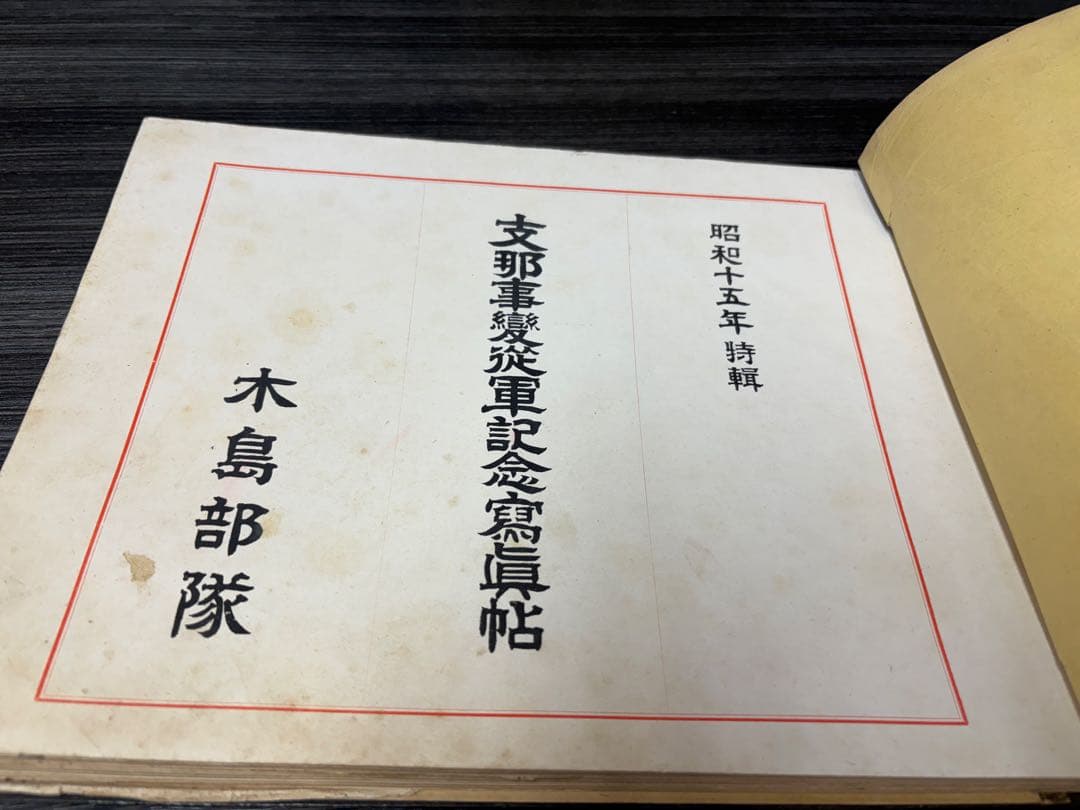 昭和十五年特輯
支那事變從軍記念寫眞帖
木島部隊